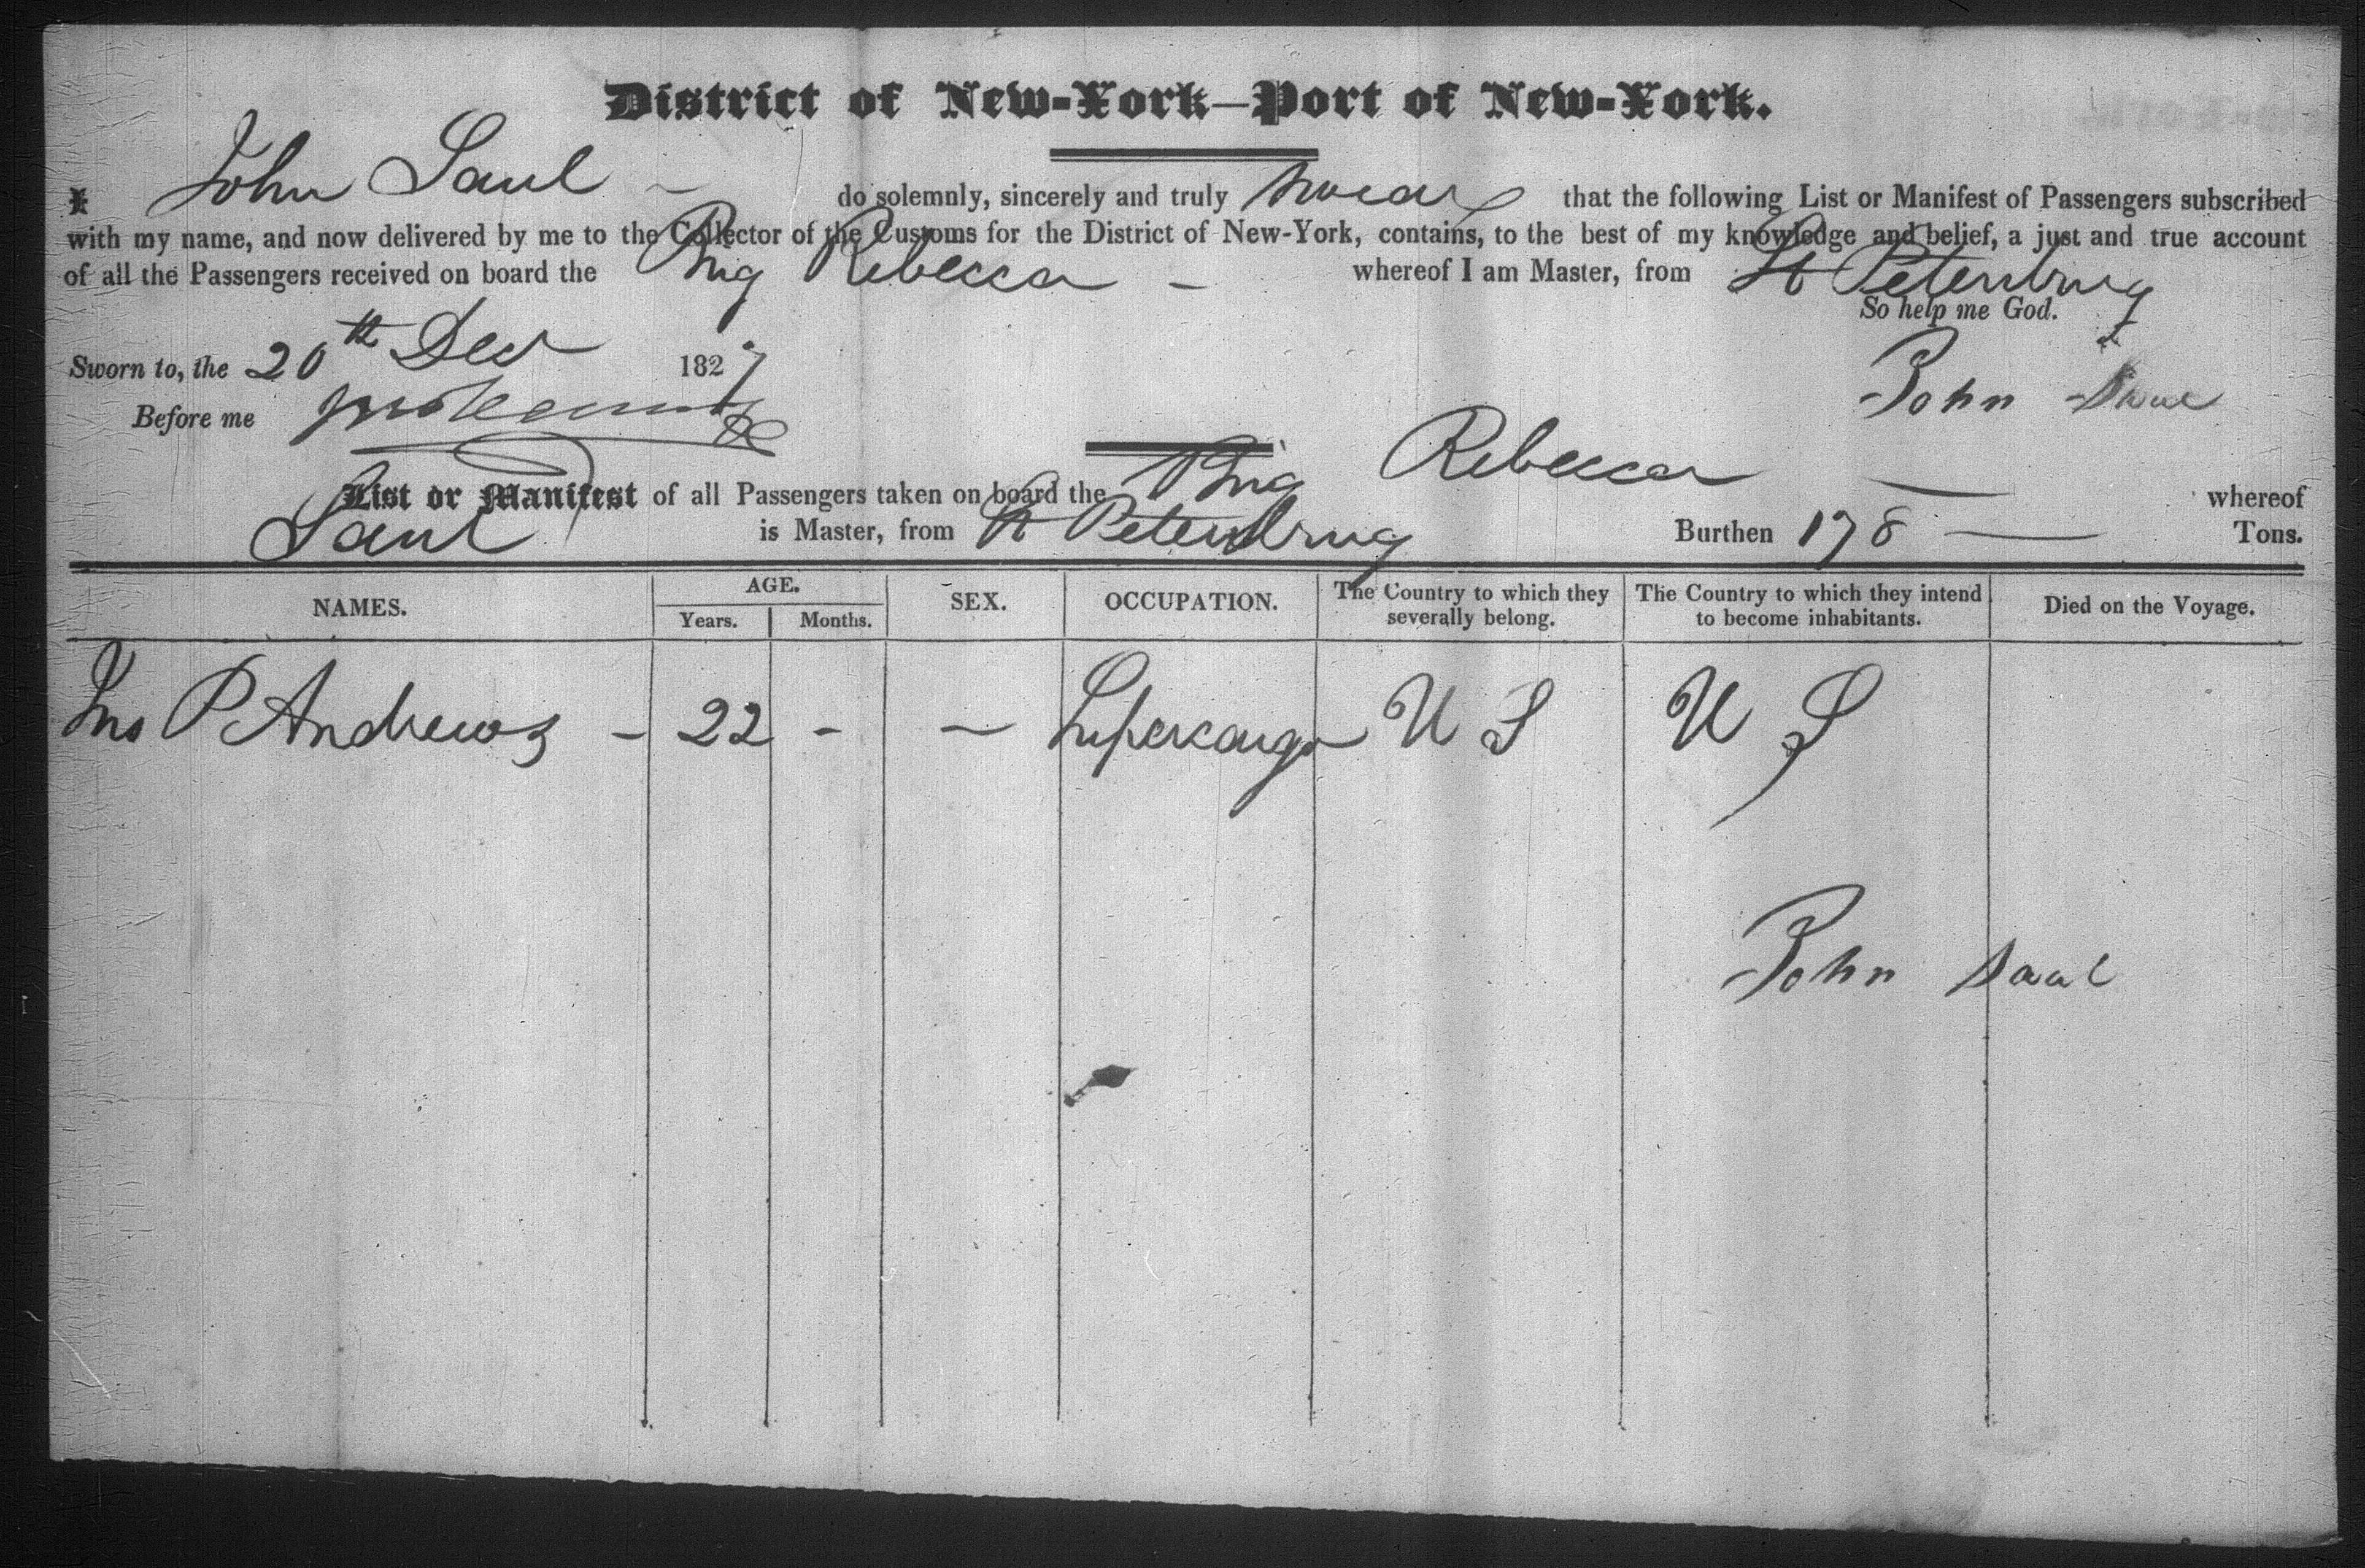 District of New-York—Port of New-York.
I John Saul — do solemnly, sincerely and truly swear that the following List or Manifest of Passengers subscribed
with my name, and now delivered by me to the Collector of the Customs for the District of New-York, contains, to the best of my knowledge and belief, a just and true account
of all the Passengers received on board the Brig Rebecca — whereof I am Master, from St Petersburg
So help me God.
Sworn to, the 20th Decr 1827
John Saul
Before me
List or Manifest of all Passengers taken on board the Brig Rebecca — whereof
Saul is Master, from St Petersburg Burthen 178 — Tons.
NAMES. AGE. Years. Months. SEX. OCCUPATION. The Country to which they severally belong. The Country to which they intend to become inhabitants. Died on the Voyage.
Jno P Andrews — 22 - — Supercargo U S U S
John Saul